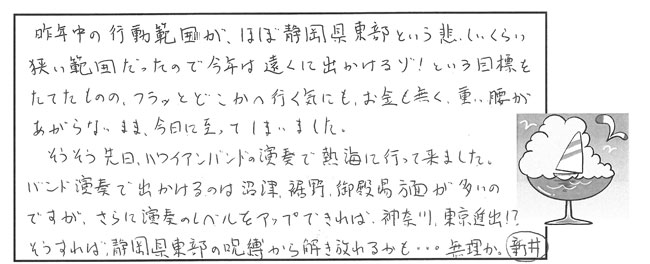 昨年中の行動範囲が、ほぼ静岡県東部という悲しいくらい
狭い範囲だったので今年は遠くに出かけるゾ!という目標を
たてたものの、フラッとどこかへ行く気にも、お金も無く、重い腰が
あがらないまま、今日に至ってしまいました。
そうそう先日、ハワイアンバンドの演奏で熱海に行って来ました。
バンド演奏で出かけるのは沼津、裾野、御殿場方面が多いの
ですが、さらに演奏のレベルをアップできれば、神奈川、東京進出!?
そうすれば、静岡県東部の呪縛から解き放れるかも・・・無理か。新井